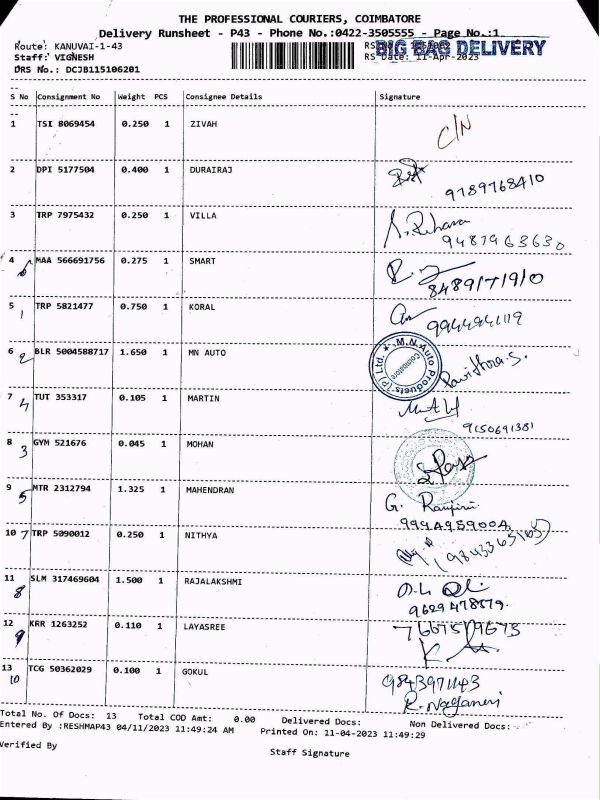 THE PROFESSIONAL COURIERS, COIMBATORE
Delivery Runsheet - P43 - Phone No.:0422-3505555 - Page No.:1
Route: KANUVAI-1-43
BIG BAG DELIVERY
Staff: VIGNESH RS Date: 11-Apr-2023
DRS No.: DCJB115106201
S No Consignment No Weight PCS Consignee Details Signature
1 TSI 8069454 0.250 1 ZIVAH C/N
2 DPI 5177504 0.400 1 DURAIRAJ
9789768410
3 TRP 7975432 0.250 1 VILLA
9487963630
4 MAA 566691756 0.275 1 SMART
8489171910
5 1 TRP 5821477 0.750 1 KORAL
6 2 BLR 5004588717 1.650 1 MN AUTO M.N.Auto Products (P) Ltd. Coimbatore
Pavithra.S.
7 4 TUT 353317 0.105 1 MARTIN
9150691381
8 3 GYM 521676 0.045 1 MOHAN
9 5 MTR 2312794 1.325 1 MAHENDRAN G. Ranjini
9994959004
10 7 TRP 5090012 0.250 1 NITHYA
11 8 SLM 317469604 1.500 1 RAJALAKSHMI
12 9 KRR 1263252 0.110 1 LAYASREE
13 10 TCG 50362029 0.100 1 GOKUL 9843971143
Total No. Of Docs: 13 Total COD Amt: 0.00 Delivered Docs: Non Delivered Docs:
Entered By :RESHMAP43 04/11/2023 11:49:24 AM Printed On: 11-04-2023 11:49:29
Verified By
Staff Signature